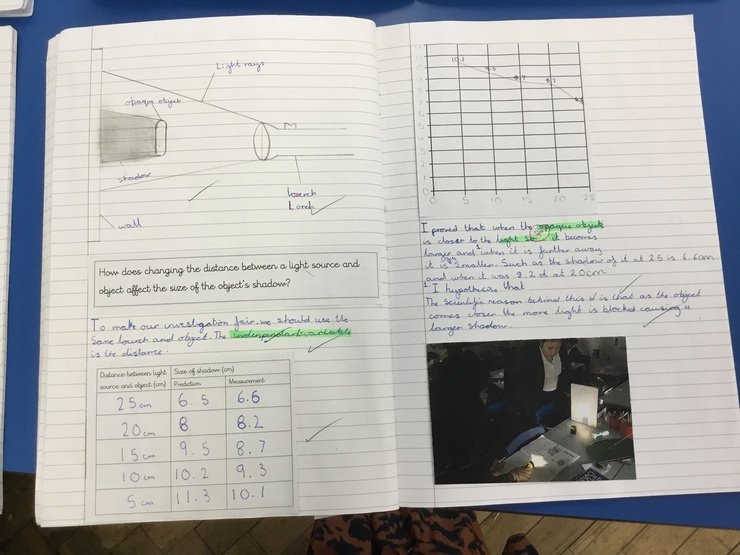 Light rays
opaque object
shadow
wall
Torch
How does changing the distance between a light source and
object affect the size of the object's shadow?
To make our investigation fair we should use the
Same tourch and object. The independant variable
is the distance.
Distance between light source and object (cm) Size of shadow (cm)
Prediction Measurement
25cm 6.5 6.6
20cm 8 8.2
15cm 9.5 8.7
10cm 10.2 9.3
5cm 11.3 10.1
10.1 9.3 8.7 8.2 6.6
0 5 10 15 20 25
I proved that when the opaque object
is closer to the light it becomes
larger and when it is further away
it is smaller. Such as the shadow of it at 25 is 6.6cm
and when it was 8.2 at 20cm
I hypothesise that
The scientific reason behind this is that as the object
comes closer the more light is blocked causing a
larger shadow.